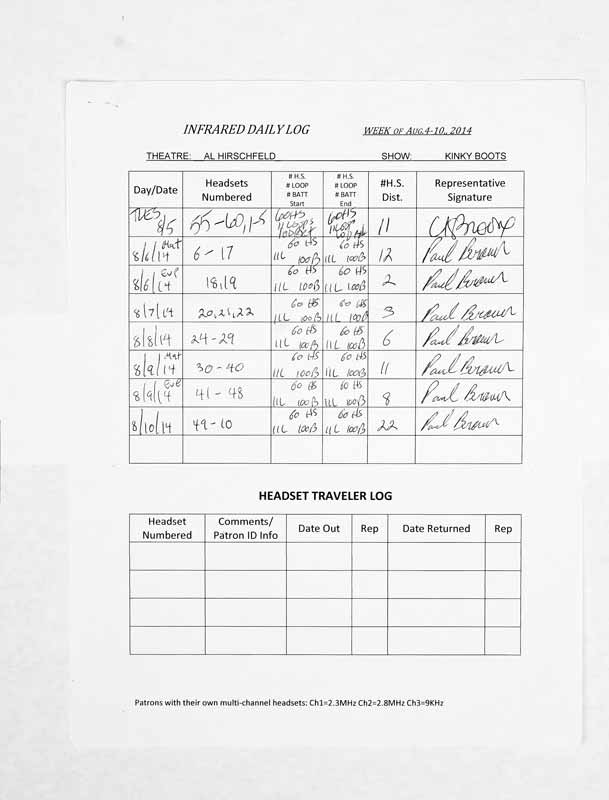 INFRARED DAILY LOG WEEK OF AUG.4-10, 2014
THEATRE: AL HIRSCHFELD SHOW: KINKY BOOTS
Day/Date Headsets Numbered # H.S. # LOOP # BATT Start # H.S. # LOOP # BATT End #H.S. Dist. Representative Signature
TUES 8/5 55-60,1-5 60HS 11Loops 60HS 11Loop 11
8/6/14 Mat 6-17 60 HS 11L 100B 60 HS 11L 100B 12 Paul Brower
8/6/14 Eve 18,19 60 HS 11L 100B 60 HS 11L 100B 2 Paul Brower
8/7/14 20,21,22 60 HS 11L 100B 60 HS 11L 100B 3 Paul Brower
8/8/14 24-29 60 HS 11L 100B 60 HS 11L 100B 6 Paul Brower
8/9/14 Mat 30-40 60 HS 11L 100B 60 HS 11L 100B 11 Paul Brower
8/9/14 Eve 41-48 60 HS 11L 100B 60 HS 11L 100B 8 Paul Brower
8/10/14 49-10 60 HS 11L 100B 60 HS 11L 100B 22 Paul Brower
HEADSET TRAVELER LOG
Headset Numbered Comments/ Patron ID Info Date Out Rep Date Returned Rep
Patrons with their own multi-channel headsets: Ch1=2.3MHz Ch2=2.8MHz Ch3=9KHz